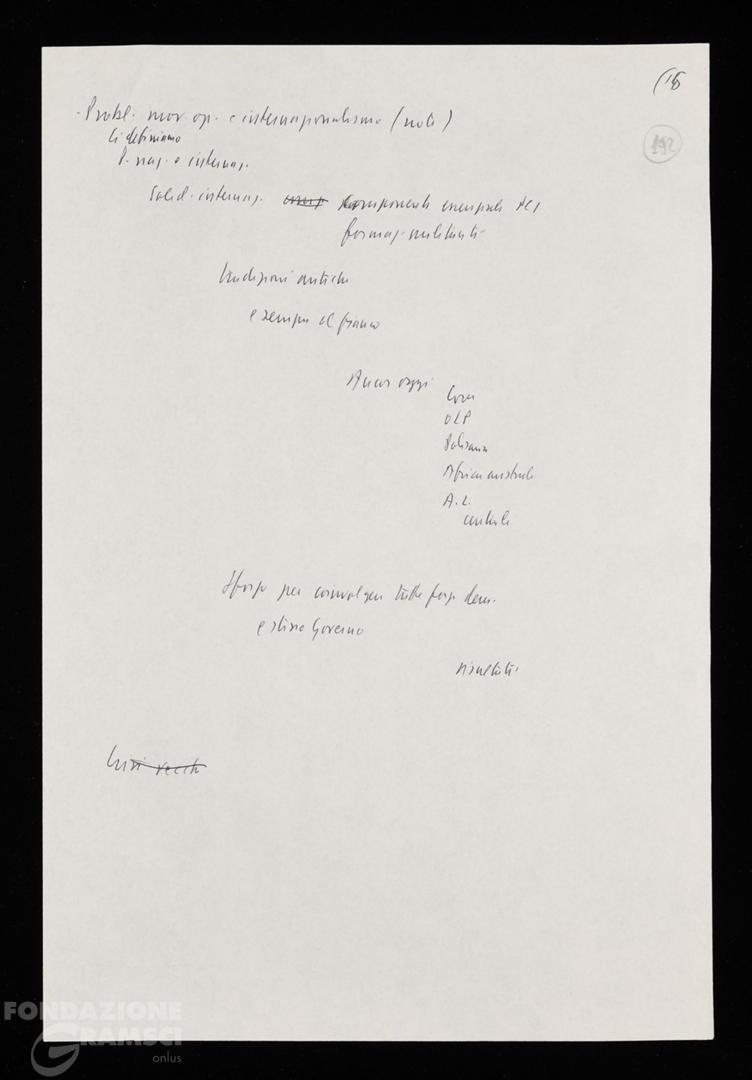 (18
192
- Probl. mov. op. e internazionalismo (noti)
Ci definiamo
P. naz. e internaz.
Solid. internaz. componente essenziale PCI
formaz. militanti
Tradizioni antiche
e sempre al fianco
Ancor oggi
OLP
Africa australe
A. L.
centrale
Sforzo per coinvolgere tutte forze dem.
e stesso Governo
risultati
FONDAZIONE
GRAMSCI
onlus